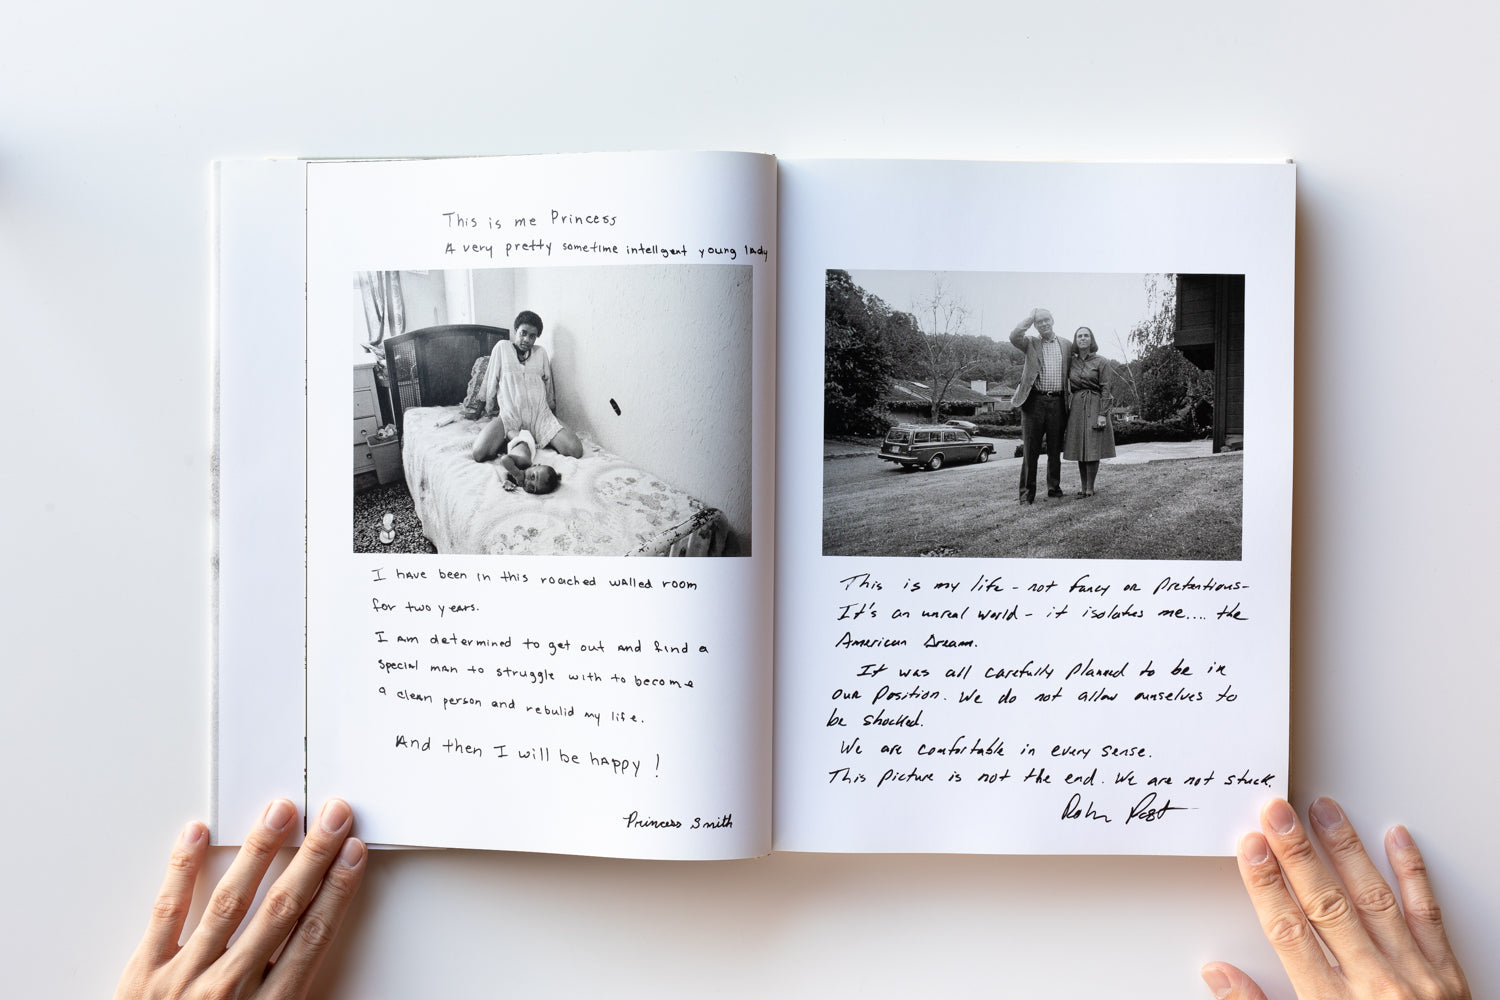 This is me Princess
A very pretty sometime intellgent young lady
I have been in this roached walled room
for two years.
I am determined to get out and find a
special man to struggle with to become
a clean person and rebulid my life.
And then I will be happy!
Princess Smith
This is my life - not fancy or pretentious -
It's an unreal world - it isolates me.... the
American Dream.
It was all carefully planned to be in
our position. We do not allow ourselves to
be shocked.
We are comfortable in every sense.
This picture is not the end. We are not stuck.